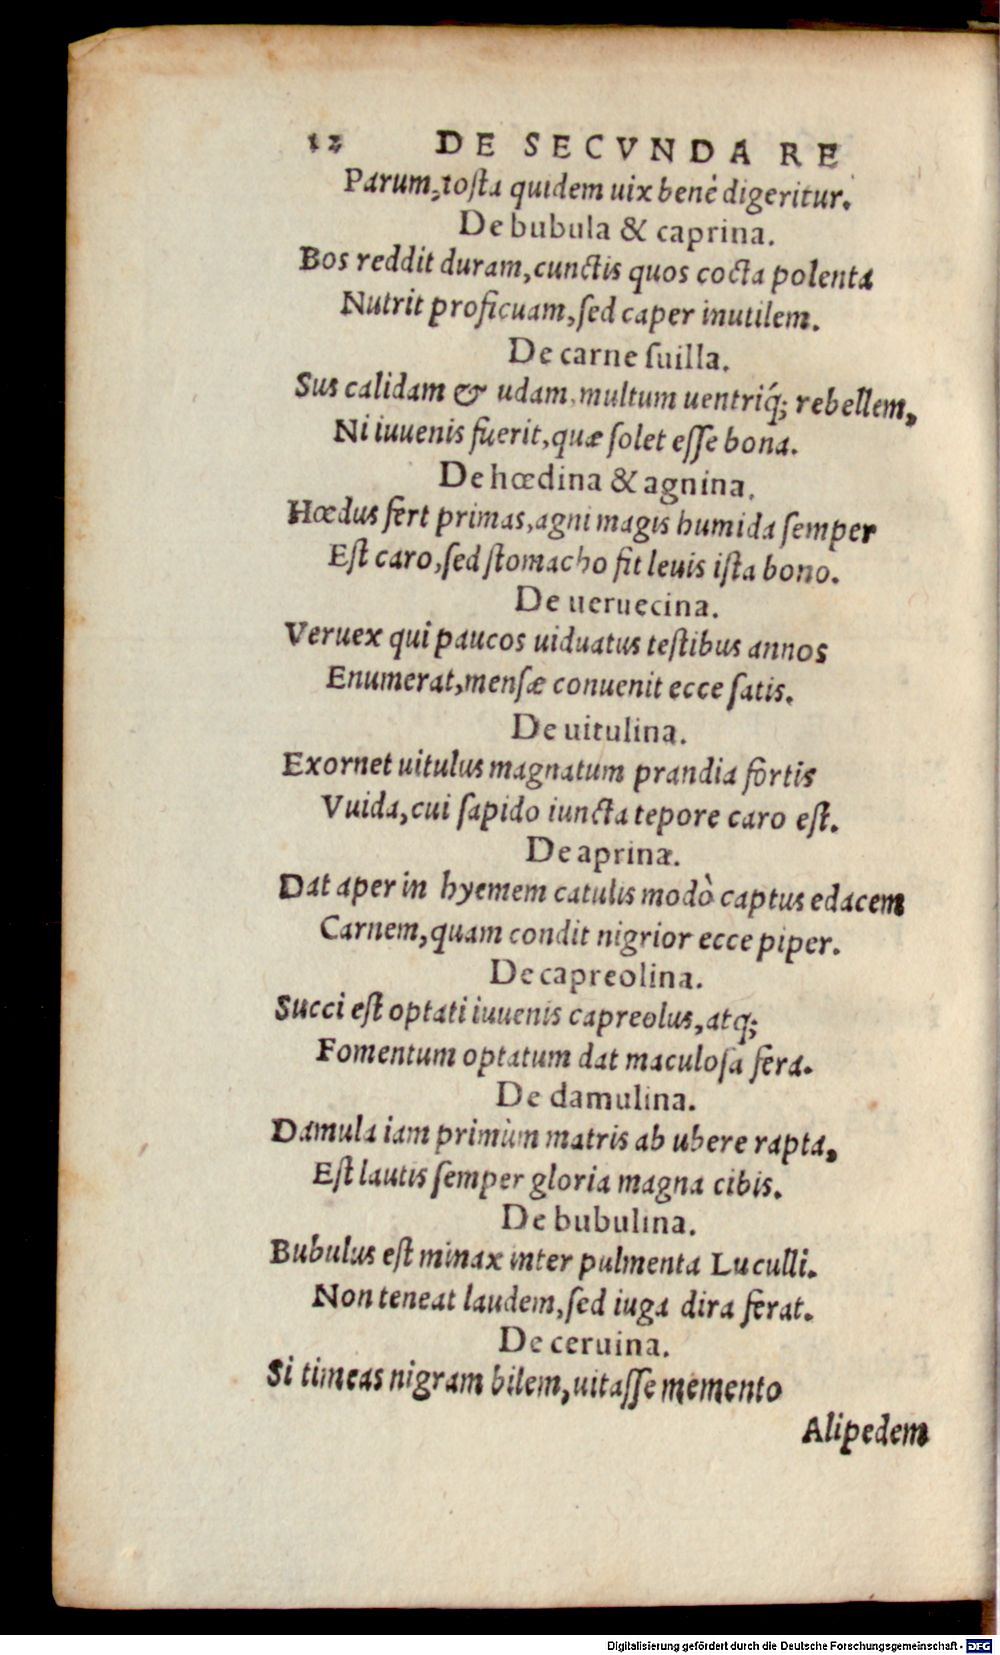 12 DE SECVNDA RE
Parum, tosta quidem uix benè digeritur.
De bubula & caprina.
Bos reddit duram, cunctis quos cocta polenta
Nutrit proficuam, ſed caper inutilem.
De carne ſuilla.
Sus calidam & udam, multum uentriq́; rebellem,
Ni iuuenis fuerit, quæ ſolet eſſe bona.
De hœdina & agnina.
Hœdus fert primas, agni magis humida ſemper
Eſt caro, ſed ſtomacho fit leuis iſta bono.
De ueruecina.
Veruex qui paucos uiduatus teſtibus annos
Enumerat, menſæ conuenit ecce ſatis.
De uitulina.
Exornet uitulus magnatum prandia fortis
Vuida, cui ſapido iuncta tepore caro eſt.
De aprinæ.
Dat aper in hyemem catulis modò captus edacem
Carnem, quam condit nigrior ecce piper.
De capreolina.
Succi eſt optati iuuenis capreolus, atq;
Fomentum optatum dat maculoſa fera.
De damulina.
Damula iam primùm matris ab ubere rapta,
Eſt lautis ſemper gloria magna cibis.
De bubulina.
Bubulus eſt minax inter pulmenta Luculli.
Non teneat laudem, ſed iuga dira ferat.
De ceruina.
Si timeas nigram bilem, uitaſſe memento
Alipedem
Digitalisierung gefördert durch die Deutsche Forschungsgemeinschaft - DFG